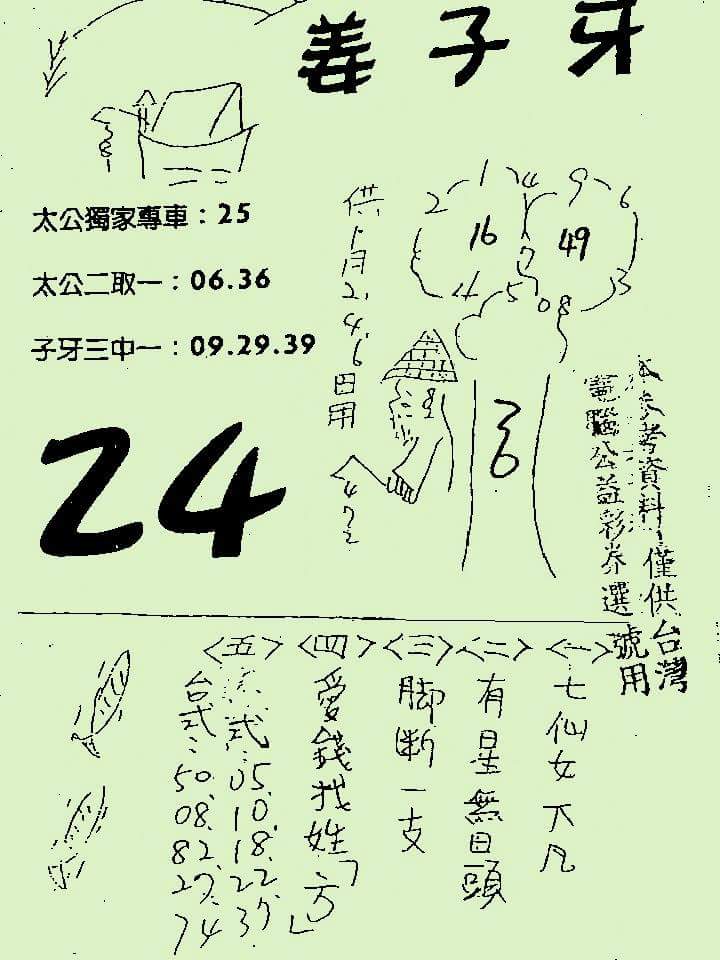 姜子牙
太公獨家專車：25
太公二取一：06.36
子牙三中一：09.29.39
24
供1月2.4.6日用
1 4 9 6
2
16 49
7
3
4 5 0 8
36
472
本參考資料僅供台灣
電腦公益彩券選號用
<一> 七仙女下凡
<二> 有星無日頭
<三> 脚斷一支
<四> 愛錢找姓「方」
<五> 式：05.10.18.22.37
台式：50.08.82.27.74